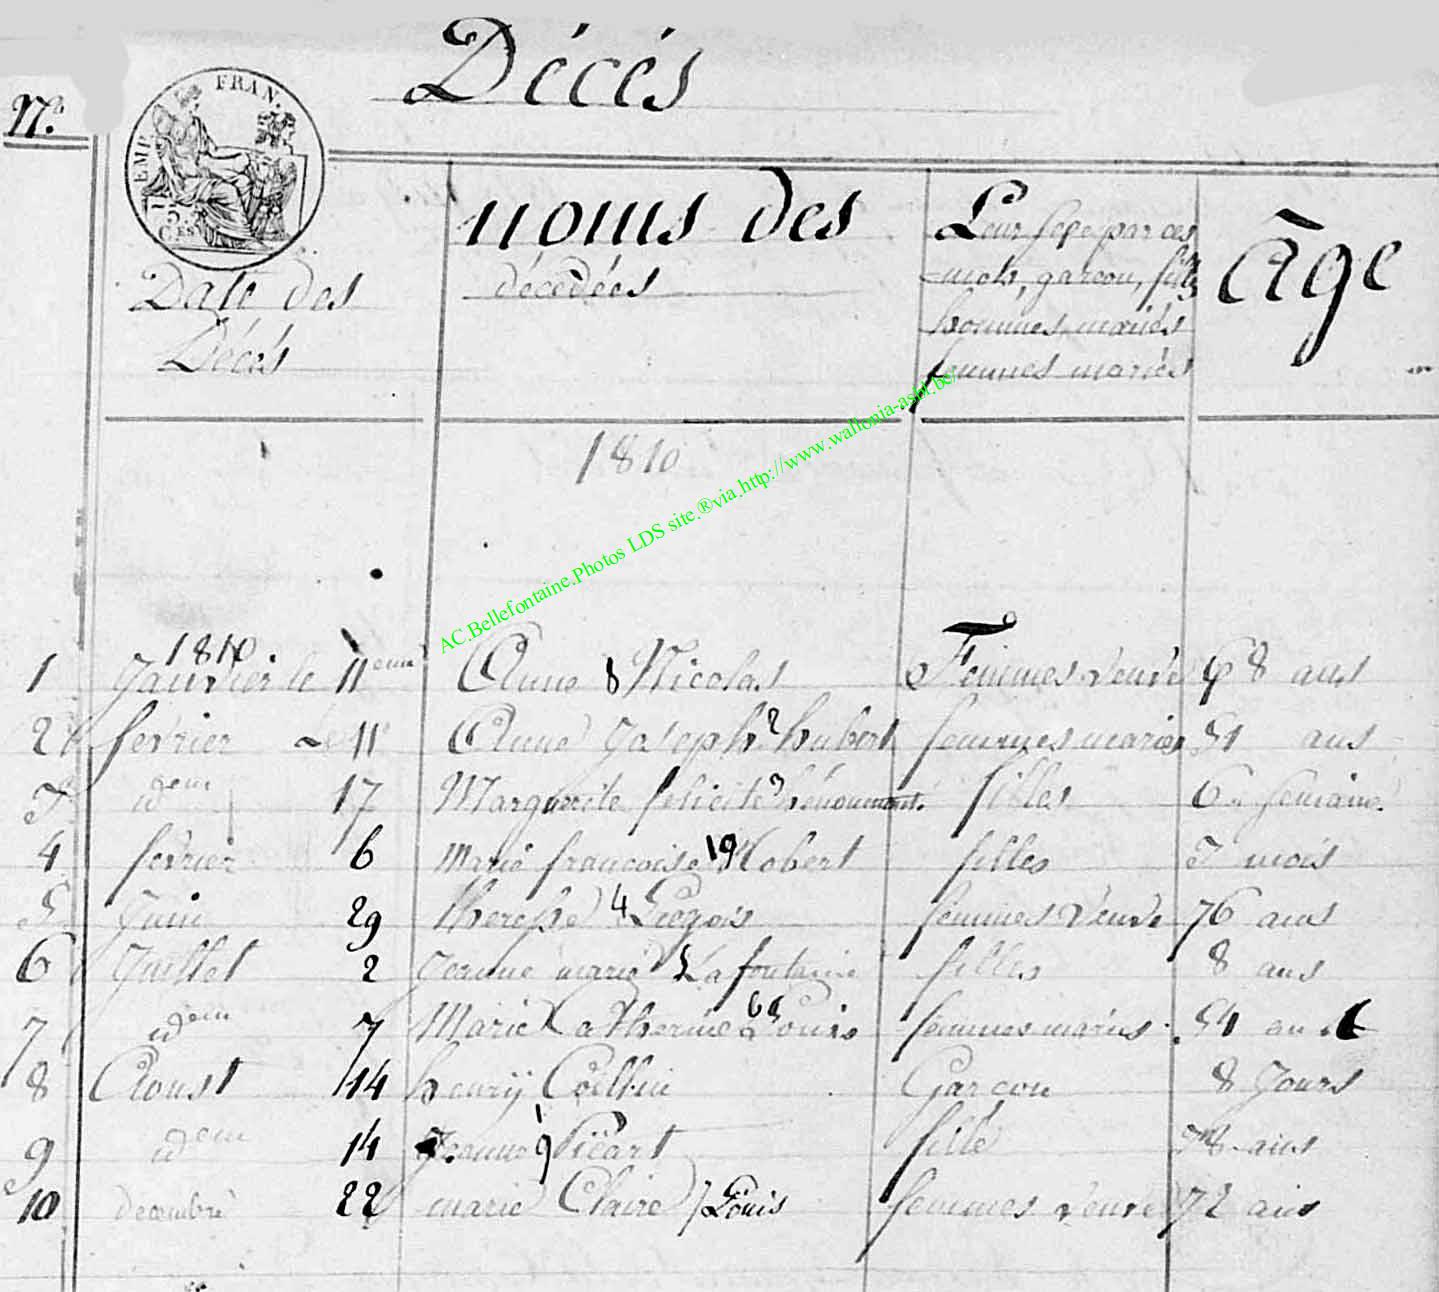 Décés
Nº.
EMP. FRAN.
5.
CES
Date des
Décés
noms des
décédées
Leur sexe par ces
mots, garcon, filles
hommes mariés
femmes mariés
âge
1810
AC.Bellefontaine.Photos LDS site.®via.http://www.wallonia-asbl.be/
1810.
1 Janvier le 11eme Anne 8 Nicolas Femmes veuve 68 ans
2 fevrier le 11 Anne Joseph 2 hubert femmes mariés 51 ans
3 idem 17 Marguerite felicité filles 6 semaine
4 fevrier 6 marie francoise 19 filles 3 mois
5 Juin 29 therese 4 femmes veuve 76 ans
6 Juillet 2 Jeanne marie Lafontaine filles 8 ans
7 idem 7 Marie Catherine Louis femmes mariés 54 ans
8 Aoust 14 henrÿ Collin Garcon 8 Jours
9 idem 14 Jeanne 9 Picart fille ans
10 decembre 22 marie Claire Louis femmes veuve 72 ans